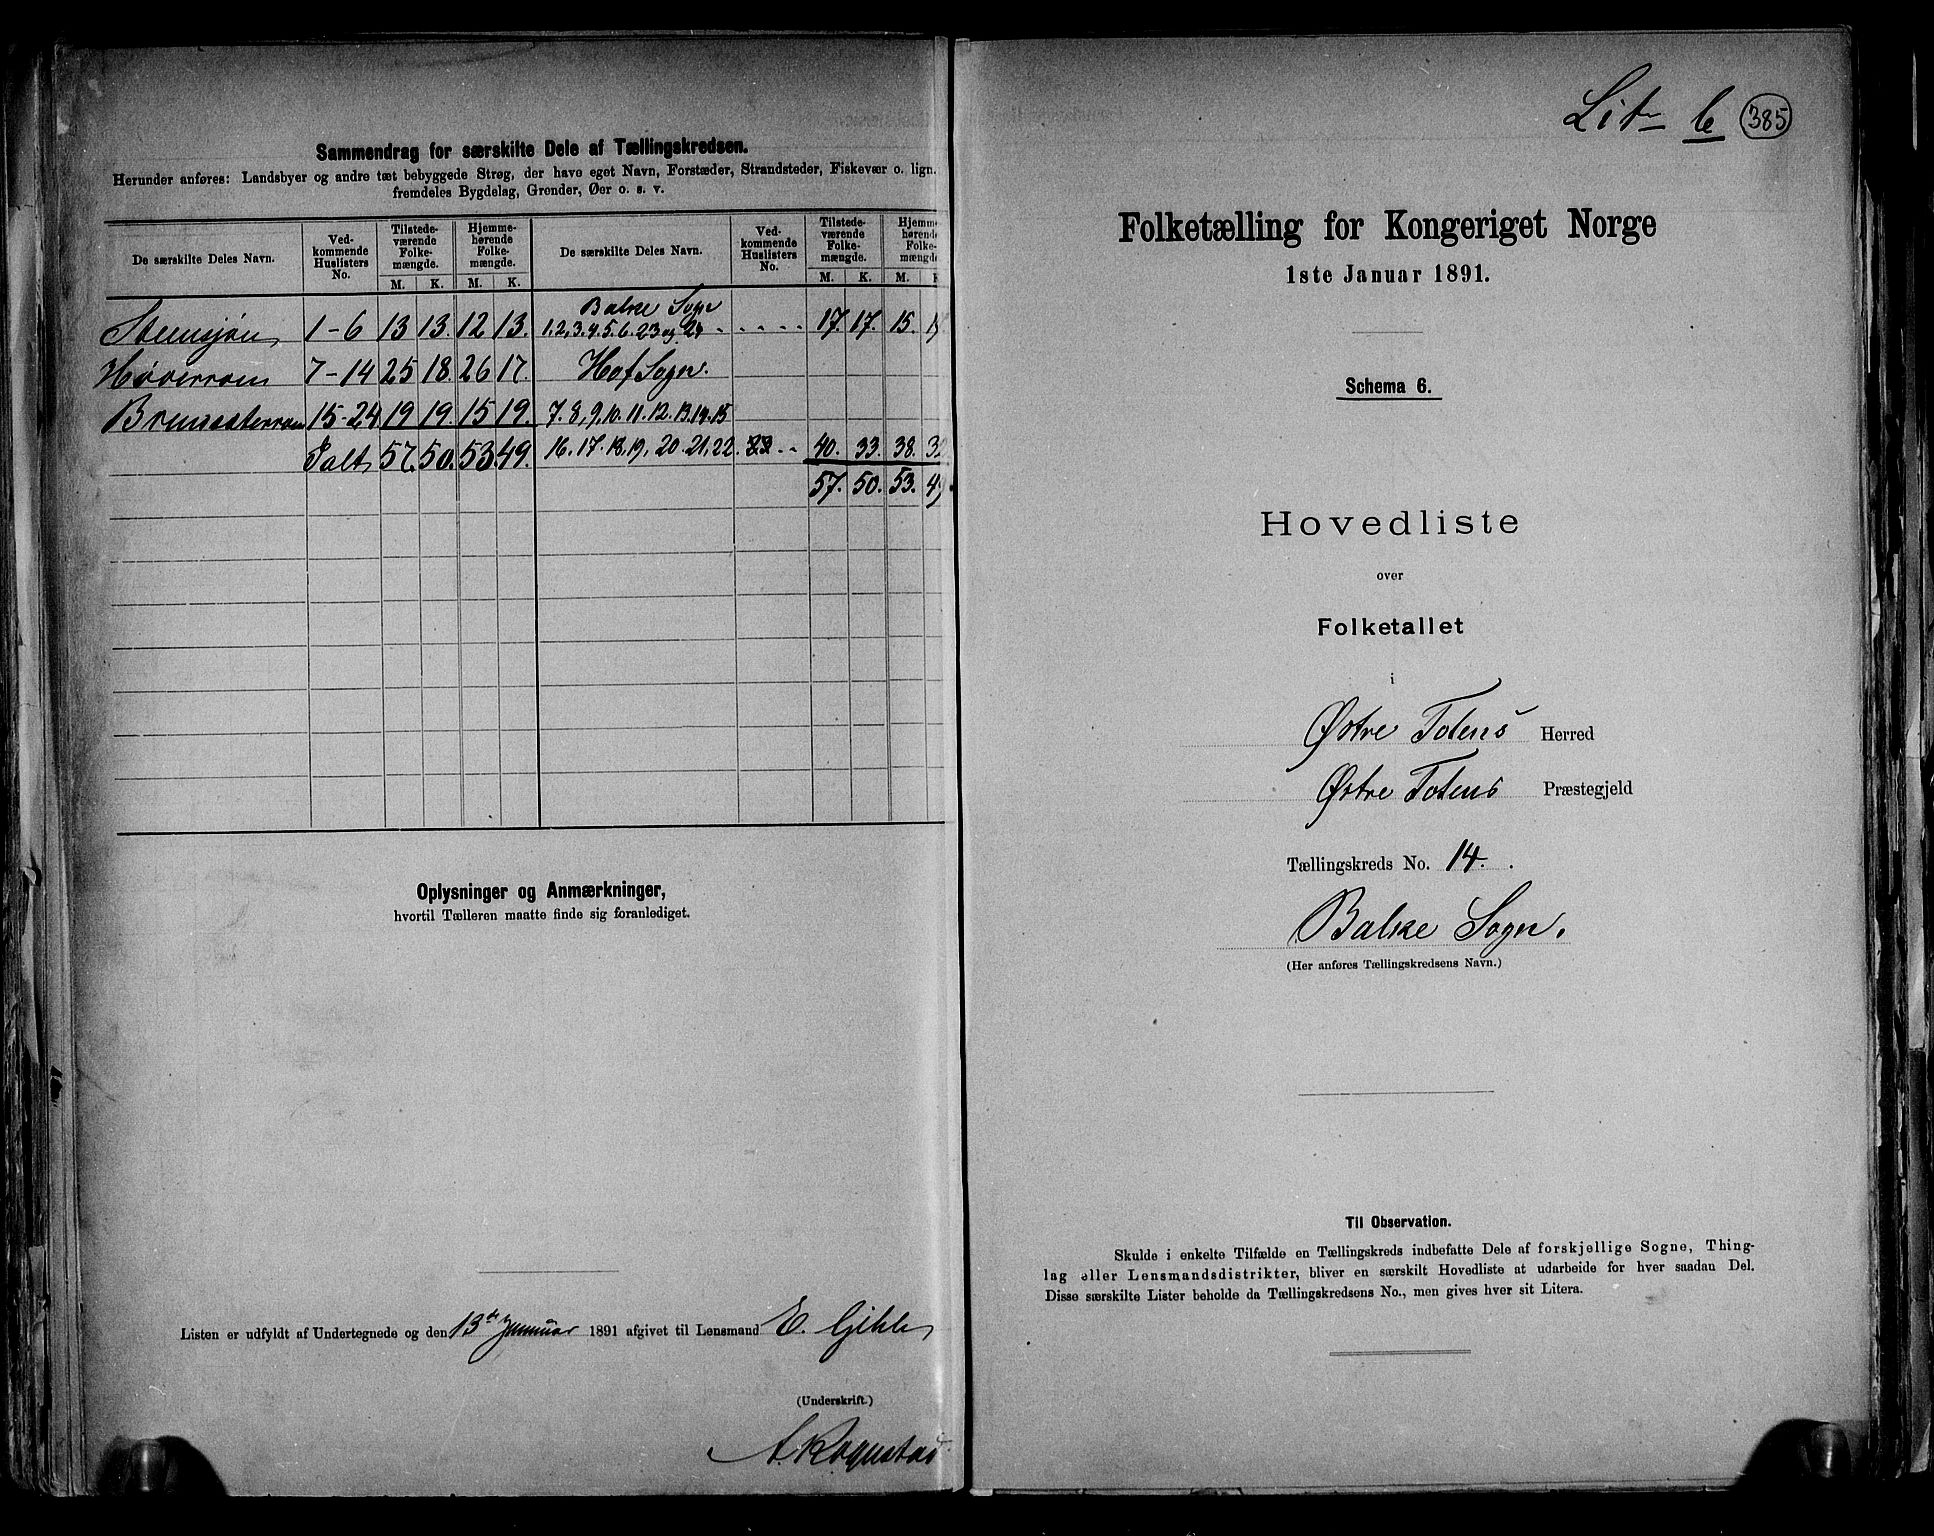 Sammendrag for særskilte Dele af Tællingskredsen.
Herunder anføres: Landsbyer og andre tæt bebyggede Strøg, der have eget Navn, Forstæder, Strandsteder, Fiskevær o. lign.
fremdeles Bygdelag, Grender, Øer o. s. v.
De særskilte Deles Navn. Ved-kommende Huslisters No. Tilstede-værende Folke-mængde. Hjemme-hørende Folke-mængde. De særskilte Deles Navn. Ved-kommende Huslisters No. Tilstede-værende Folke-mængde. Hjemme-hørende Folke-mængde
M. K. M. K. M. K. M. K
Balke Sogn
Stensjøn 1-6 13 13. 12 13. 1.2,3.4.5.6.23 og 24 17. 17. 15.
7-14 25 18. 26 17. Hof Sogn.
15-24 19 19. 15 19. 7.8,9.10.11.12.13.14.15
Ialt 57. 50. 53 49. 16.17.18,19, 20.21,22. 40. 33. 38. 32
57. 50. 53. 49
Oplysninger og Anmærkninger,
hvortil Tælleren maatte finde sig foranlediget.
Listen er udfyldt af Undertegnede og den 13de Januar 1891 afgivet til Lensmand E. Gihle
(Underskrift.)
A. Rognstad
Lit b 385
Folketælling for Kongeriget Norge
1ste Januar 1891.
Schema 6.
Hovedliste
over
Folketallet
i
Østre Totens Herred
Østre Totens Præstegjeld
Tællingskreds No. 14.
Balke Sogn.
(Her anføres Tællingskredsens Navn.)
Til Observation.
Skulde i enkelte Tilfælde en Tællingskreds indbefatte Dele af forskjellige Sogne, Thing-
lag eller Lensmandsdistrikter, bliver en særskilt Hovedliste at udarbeide for hver saadan Del.
Disse særskilte Lister beholde da Tællingskredsens No., men gives hver sit Litera.